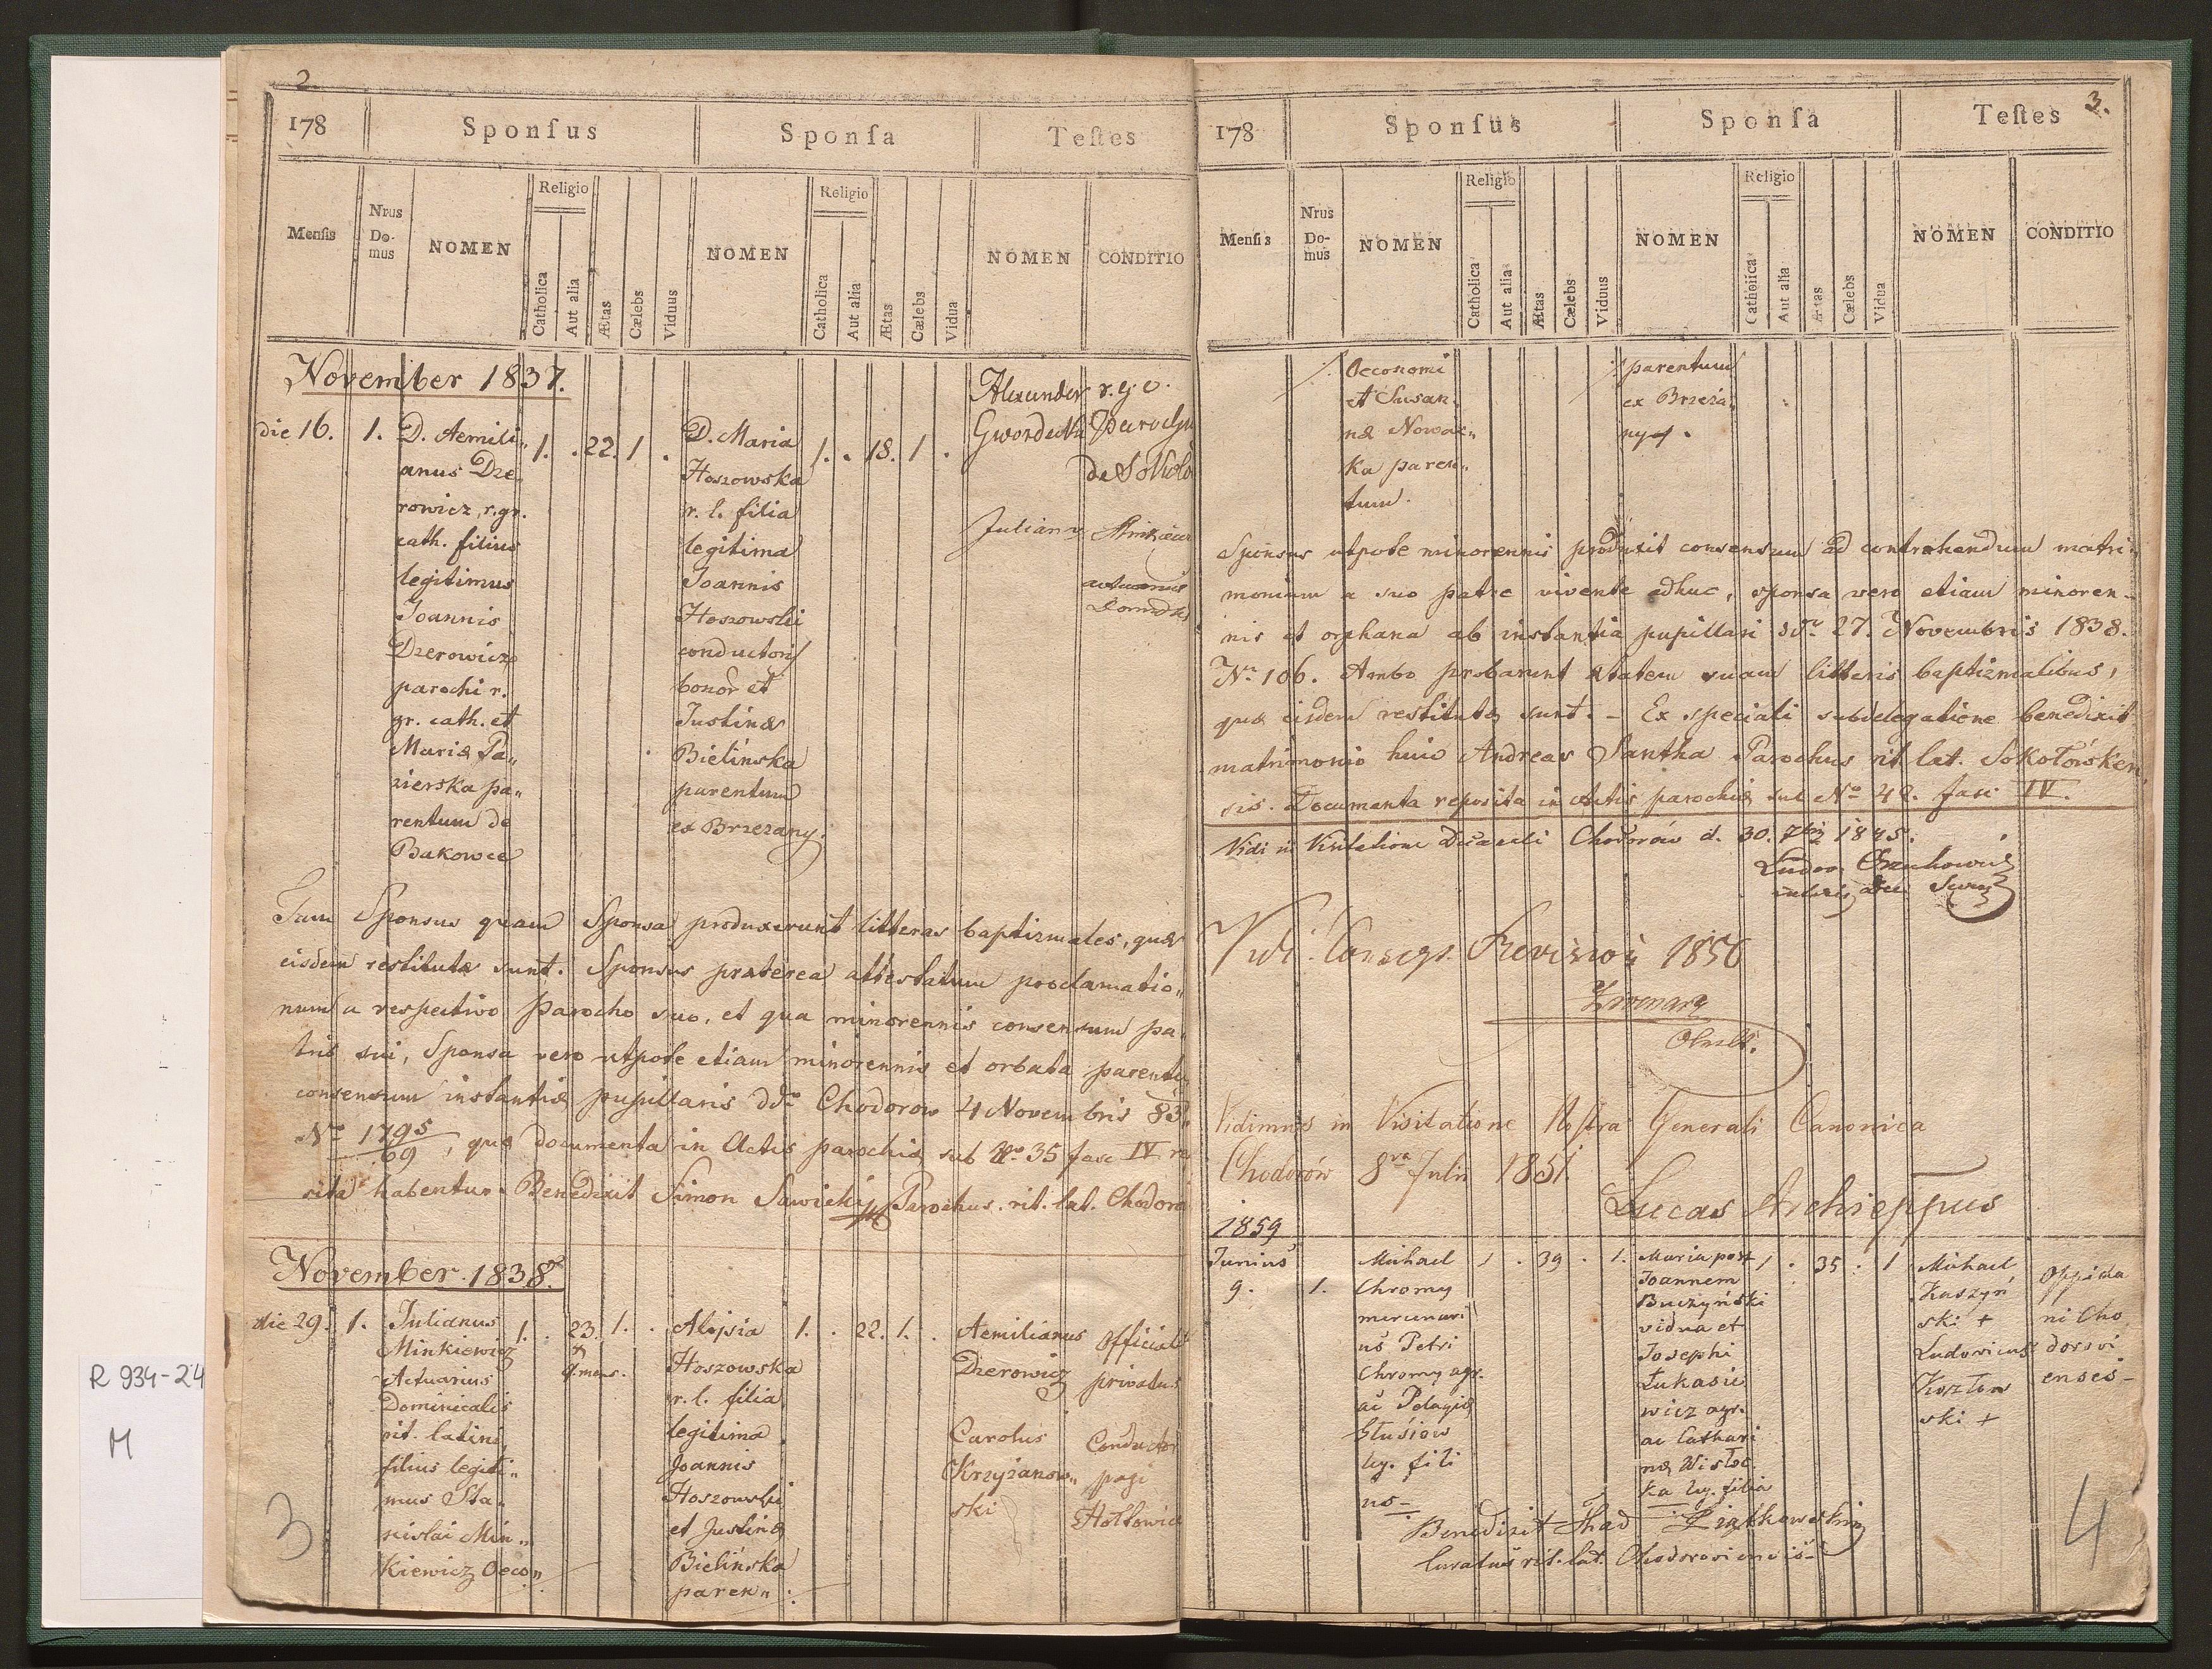 R 934-24
M
2.
178 Sponſus Sponſa Teſtes
Menſis Nrus Do-mus NOMEN Religio Catholica Aut alia Ætas Cælebs Viduus NOMEN Religio Catholica Aut alia Ætas Cælebs Vidua NOMEN CONDITIO
November 1837.
die 16. 1. D. Aemili„ 1. . 22. 1 . D. Maria 1. . 18. 1 .
anus Dze„
rowicz, r. gr.
cath. filius
legitimus
Joannis
Dzerowicz
parochi r.
gr. cath. et
Mariæ Pa„
zierska pa„
rentum de
Bakowce
Hoszowska
r. l. filia
legitima
Joannis
Hoszowski
conductoris
bonor et
Justinæ
Bielińska
parentum
ex Brzezany.
Alexander r. g. c.
de
Julian
Tum Sponsus quam Sponsa produxerunt litteras baptizmales, quæ
eisdem restitutæ sunt. Sponsus præterea attestatum proclamatio„
num a respectivo Parocho suo, et qua minorennis consensum pa„
tris sui, Sponsa vero utpote etiam minorennis et orbata
consensum instantiæ pupillaris ddo Chodorow 4 Novembris 83
No 1795/69, quæ documenta in Actis parochiæ sub No 35 fasc IV
habentur. Benedixit Simon Sawicki Parochus rit. lat.
November 1838.
die 29. 1. Julianus 1. . 23. 1. . Aloysia 1. . 22. 1. . Aemilianus
Minkiewicz
Actuarius
Dominicalis
rit. latini,
filius legiti„
mus Sta„
nislai Min„
kiewicz Oeco„
9. mens.
Hoszowska
r. l. filia
legitima
Joannis
Hoszowski
et Justinæ
Bielińska
paren„
Dzerowicz
privatus
Carolus Conductor
Krzyżanow„ pagi
ski
3
3.
178 Sponſus Sponſa Teſtes
Menſis Nrus Do-mus NOMEN Religio Catholica Aut alia Ætas Cælebs Viduus NOMEN Religio Catholica Aut alia Ætas Cælebs Vidua NOMEN CONDITIO
Oeconomi
et Susan„
næ Nowac„
ka paren„
tum.
parentum
ex Brzeża„
ny
Sponsus utpote minorennis produxit consensum ad contrahendum matri„
monium a suo patre vivente adhuc, sponsa vero etiam minoren-
nis et orphana ab instantia pupillari ddo 27. Novembris 1838.
No 106. Ambo probarunt ætatem suam litteris baptizmalibus,
quæ eisdem restitutæ sunt. - Ex speciali subdelegatione benedixit
matrimonio huic Andreas Santha Parochus rit. lat. Sokołówken„
sis. Documenta reposita in Actis parochiæ sub No 42. fasc IV.
Vidi in Visitatione Chodorów d. 30. 1845.
Vidi 1850
Vidimus in Visitatione Nostra Generali Canonica
Chodorów 8va Julii 1851.
Lucas Archieppus
1859
Junius Michael 1 . 39 . 1. Maria post 1 . 35 . 1 Michael Oppida
9. 1. Chromy
mercenari
us Petri
Chromy agr.
ac Pelagiæ
leg. fili
us-
Joannem
Buczyński
vidua et
Josephi
Łukasie
wicz agr.
ac Cathari
næ Wisłoc
ka leg. filia
Kaszyń
ski +
Ludovicus
Kozłow
ski +
ni Cho
dorovi
enses-
Benedixit Thad
Curatus rit. lat. Chodoroviensis-
4